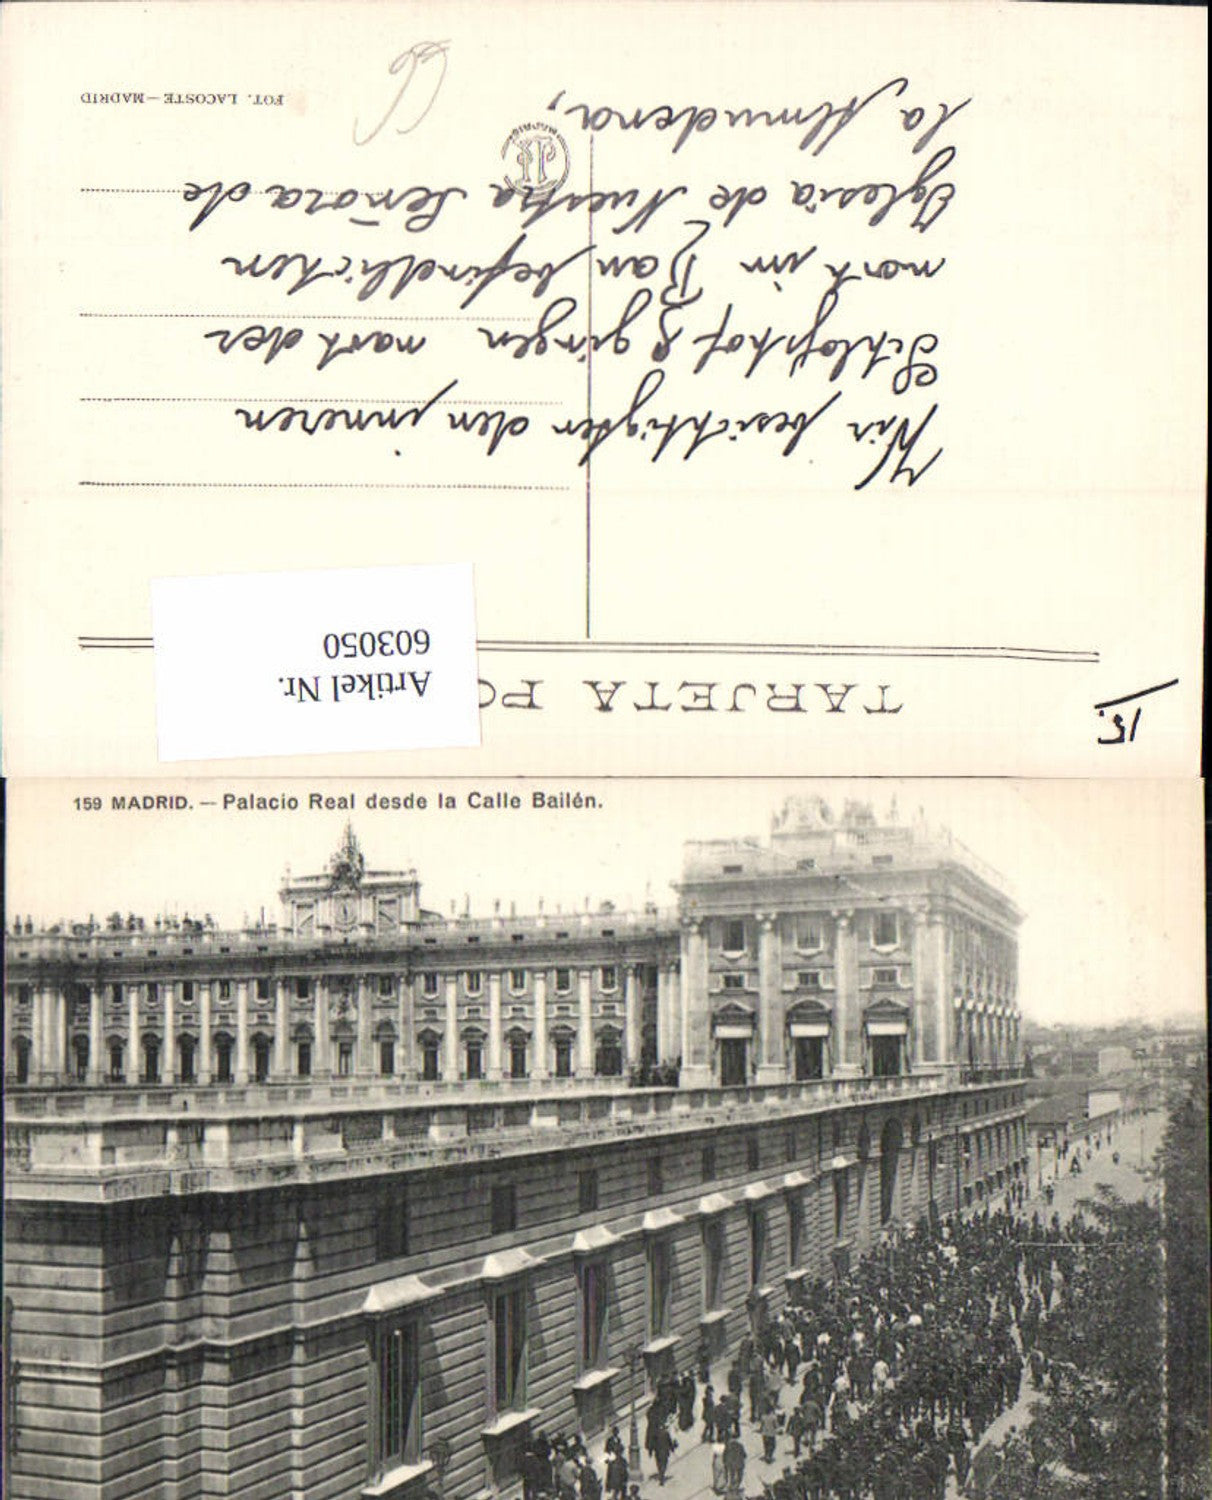 TARJETA PO
15.
Artikel Nr.
603050
Wir besichtigten den inneren
Schloßhof & gingen nach der
noch im Bau befindlichen
Iglesia de Nuestra Señora de
la Almudena,
FOT. LACOSTE—MADRID
MADRID
159 MADRID. — Palacio Real desde la Calle Bailén.